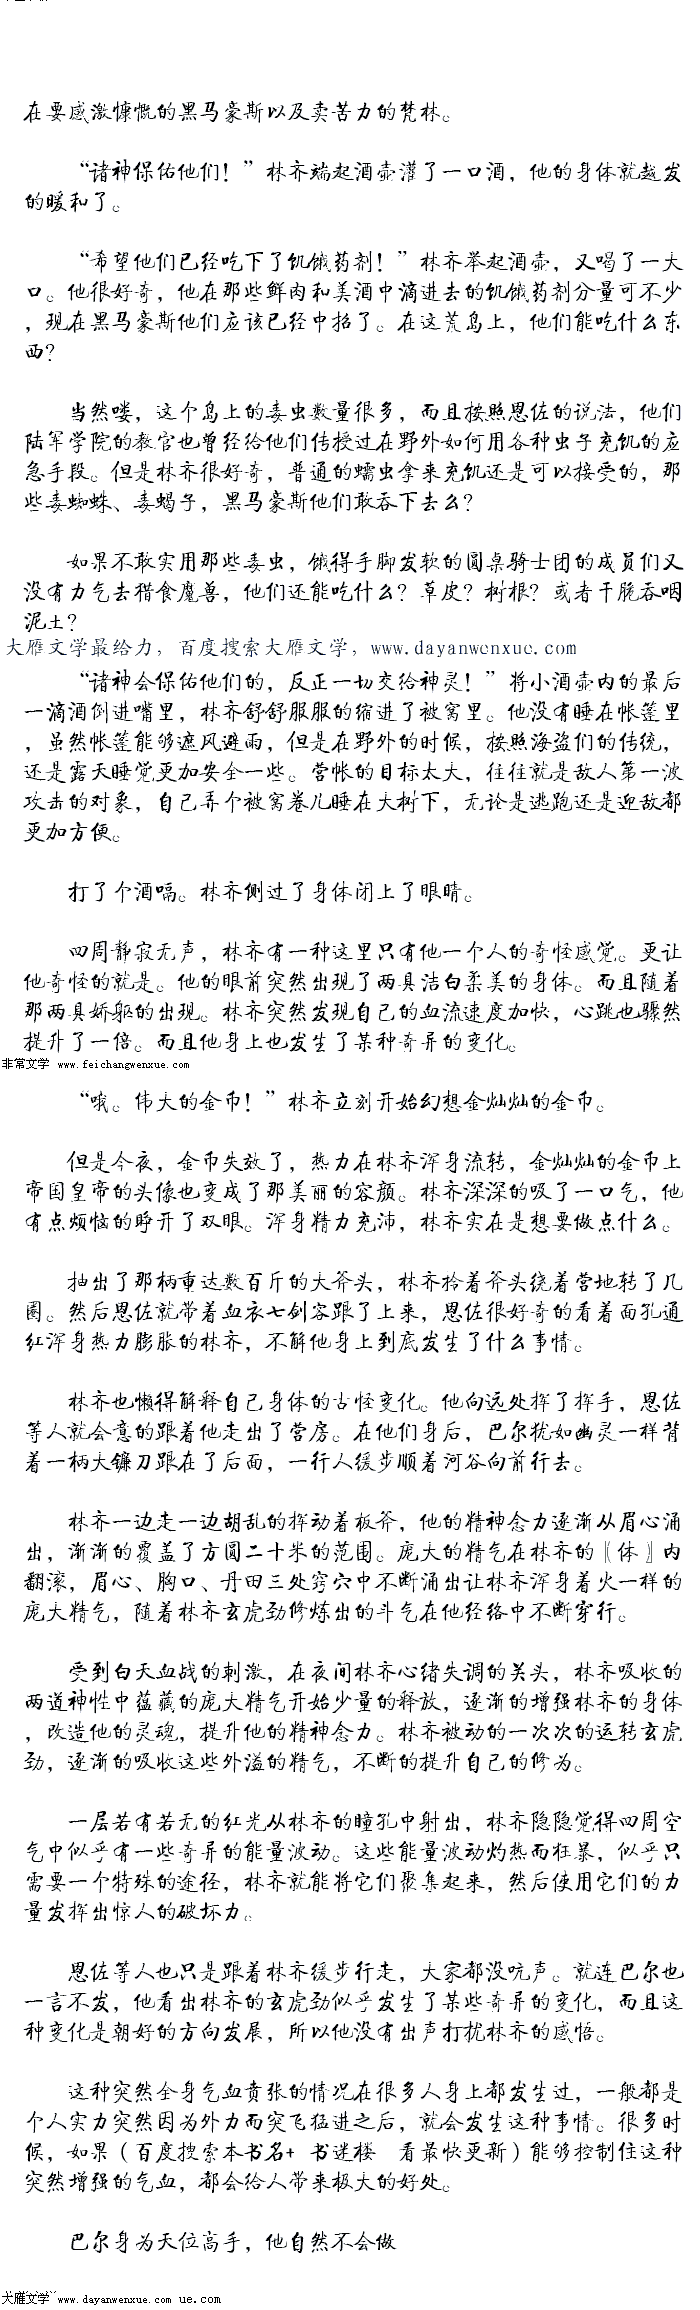 在要感激慷慨的黑马豪斯以及卖苦力的梵林。
“诸神保佑他们！”林齐端起酒壶灌了一口酒，他的身体就越发
的暖和了。
“希望他们已经吃下了饥饿药剂！”林齐举起酒壶，又喝了一大
口。他很好奇，他在那些鲜肉和美酒中滴进去的饥饿药剂分量可不少
，现在黑马豪斯他们应该已经中招了。在这荒岛上，他们能吃什么东
西？
当然喽，这个岛上的毒虫数量很多，而且按照恩佐的说法，他们
陆军学院的教官也曾经给他们传授过在野外如何用各种虫子充饥的应
急手段。但是林齐很好奇，普通的蠕虫拿来充饥还是可以接受的，那
些毒蜘蛛、毒蝎子，黑马豪斯他们敢吞下去么？
如果不敢实用那些毒虫，饿得手脚发软的圆桌骑士团的成员们又
没有力气去猎食魔兽，他们还能吃什么？草皮？树根？或者干脆吞咽
泥土？
大雁文学最给力，百度搜索大雁文学，www.dayanwenxue.com
“诸神会保佑他们的，反正一切交给神灵！”将小酒壶内的最后
一滴酒倒进嘴里，林齐舒舒服服的缩进了被窝里。他没有睡在帐篷里
，虽然帐篷能够遮风避雨，但是在野外的时候，按照海盗们的传统，
还是露天睡觉更加安全一些。营帐的目标太大，往往就是敌人第一波
攻击的对象，自己弄个被窝卷儿睡在大树下，无论是逃跑还是迎敌都
更加方便。
打了个酒嗝。林齐侧过了身体闭上了眼睛。
四周静寂无声，林齐有一种这里只有他一个人的奇怪感觉。更让
他奇怪的就是。他的眼前突然出现了两具洁白柔美的身体。而且随着
那两具娇躯的出现。林齐突然发现自己的血流速度加快，心跳也骤然
提升了一倍。而且他身上也发生了某种奇异的变化。
非常文学 www.feichangwenxue.com
“哦。伟大的金币！”林齐立刻开始幻想金灿灿的金币。
但是今夜，金币失效了，热力在林齐浑身流转，金灿灿的金币上
帝国皇帝的头像也变成了那美丽的容颜。林齐深深的吸了一口气，他
有点烦恼的睁开了双眼。浑身精力充沛，林齐实在是想要做点什么。
抽出了那柄重达数百斤的大斧头，林齐拎着斧头绕着营地转了几
圈。然后恩佐就带着血衣七剑客跟了上来，恩佐很好奇的看着面孔通
红浑身热力膨胀的林齐，不解他身上到底发生了什么事情。
林齐也懒得解释自己身体的古怪变化。他向远处挥了挥手，恩佐
等人就会意的跟着他走出了营房。在他们身后，巴尔犹如幽灵一样背
着一柄大镰刀跟在了后面，一行人缓步顺着河谷向前行去。
林齐一边走一边胡乱的挥动着板斧，他的精神念力逐渐从眉心涌
出，渐渐的覆盖了方圆二十米的范围。庞大的精气在林齐的〖体〗内
翻滚，眉心、胸口、丹田三处窍穴中不断涌出让林齐浑身着火一样的
庞大精气，随着林齐玄虎劲修炼出的斗气在他经络中不断穿行。
受到白天血战的刺激，在夜间林齐心绪失调的关头，林齐吸收的
两道神性中蕴藏的庞大精气开始少量的释放，逐渐的增强林齐的身体
，改造他的灵魂，提升他的精神念力。林齐被动的一次次的运转玄虎
劲，逐渐的吸收这些外溢的精气，不断的提升自己的修为。
一层若有若无的红光从林齐的瞳孔中射出，林齐隐隐觉得四周空
气中似乎有一些奇异的能量波动。这些能量波动灼热而狂暴，似乎只
需要一个特殊的途径，林齐就能将它们聚集起来，然后使用它们的力
量发挥出惊人的破坏力。
恩佐等人也只是跟着林齐缓步行走，大家都没吭声。就连巴尔也
一言不发，他看出林齐的玄虎劲似乎发生了某些奇异的变化，而且这
种变化是朝好的方向发展，所以他没有出声打扰林齐的感悟。
这种突然全身气血贲张的情况在很多人身上都发生过，一般都是
个人实力突然因为外力而突飞猛进之后，就会发生这种事情。很多时
候，如果（百度搜索本书名+ 书迷楼 看最快更新）能够控制住这种
突然增强的气血，都会给人带来极大的好处。
巴尔身为天位高手，他自然不会做
大雁文学 www.dayanwenxue.com ue.com